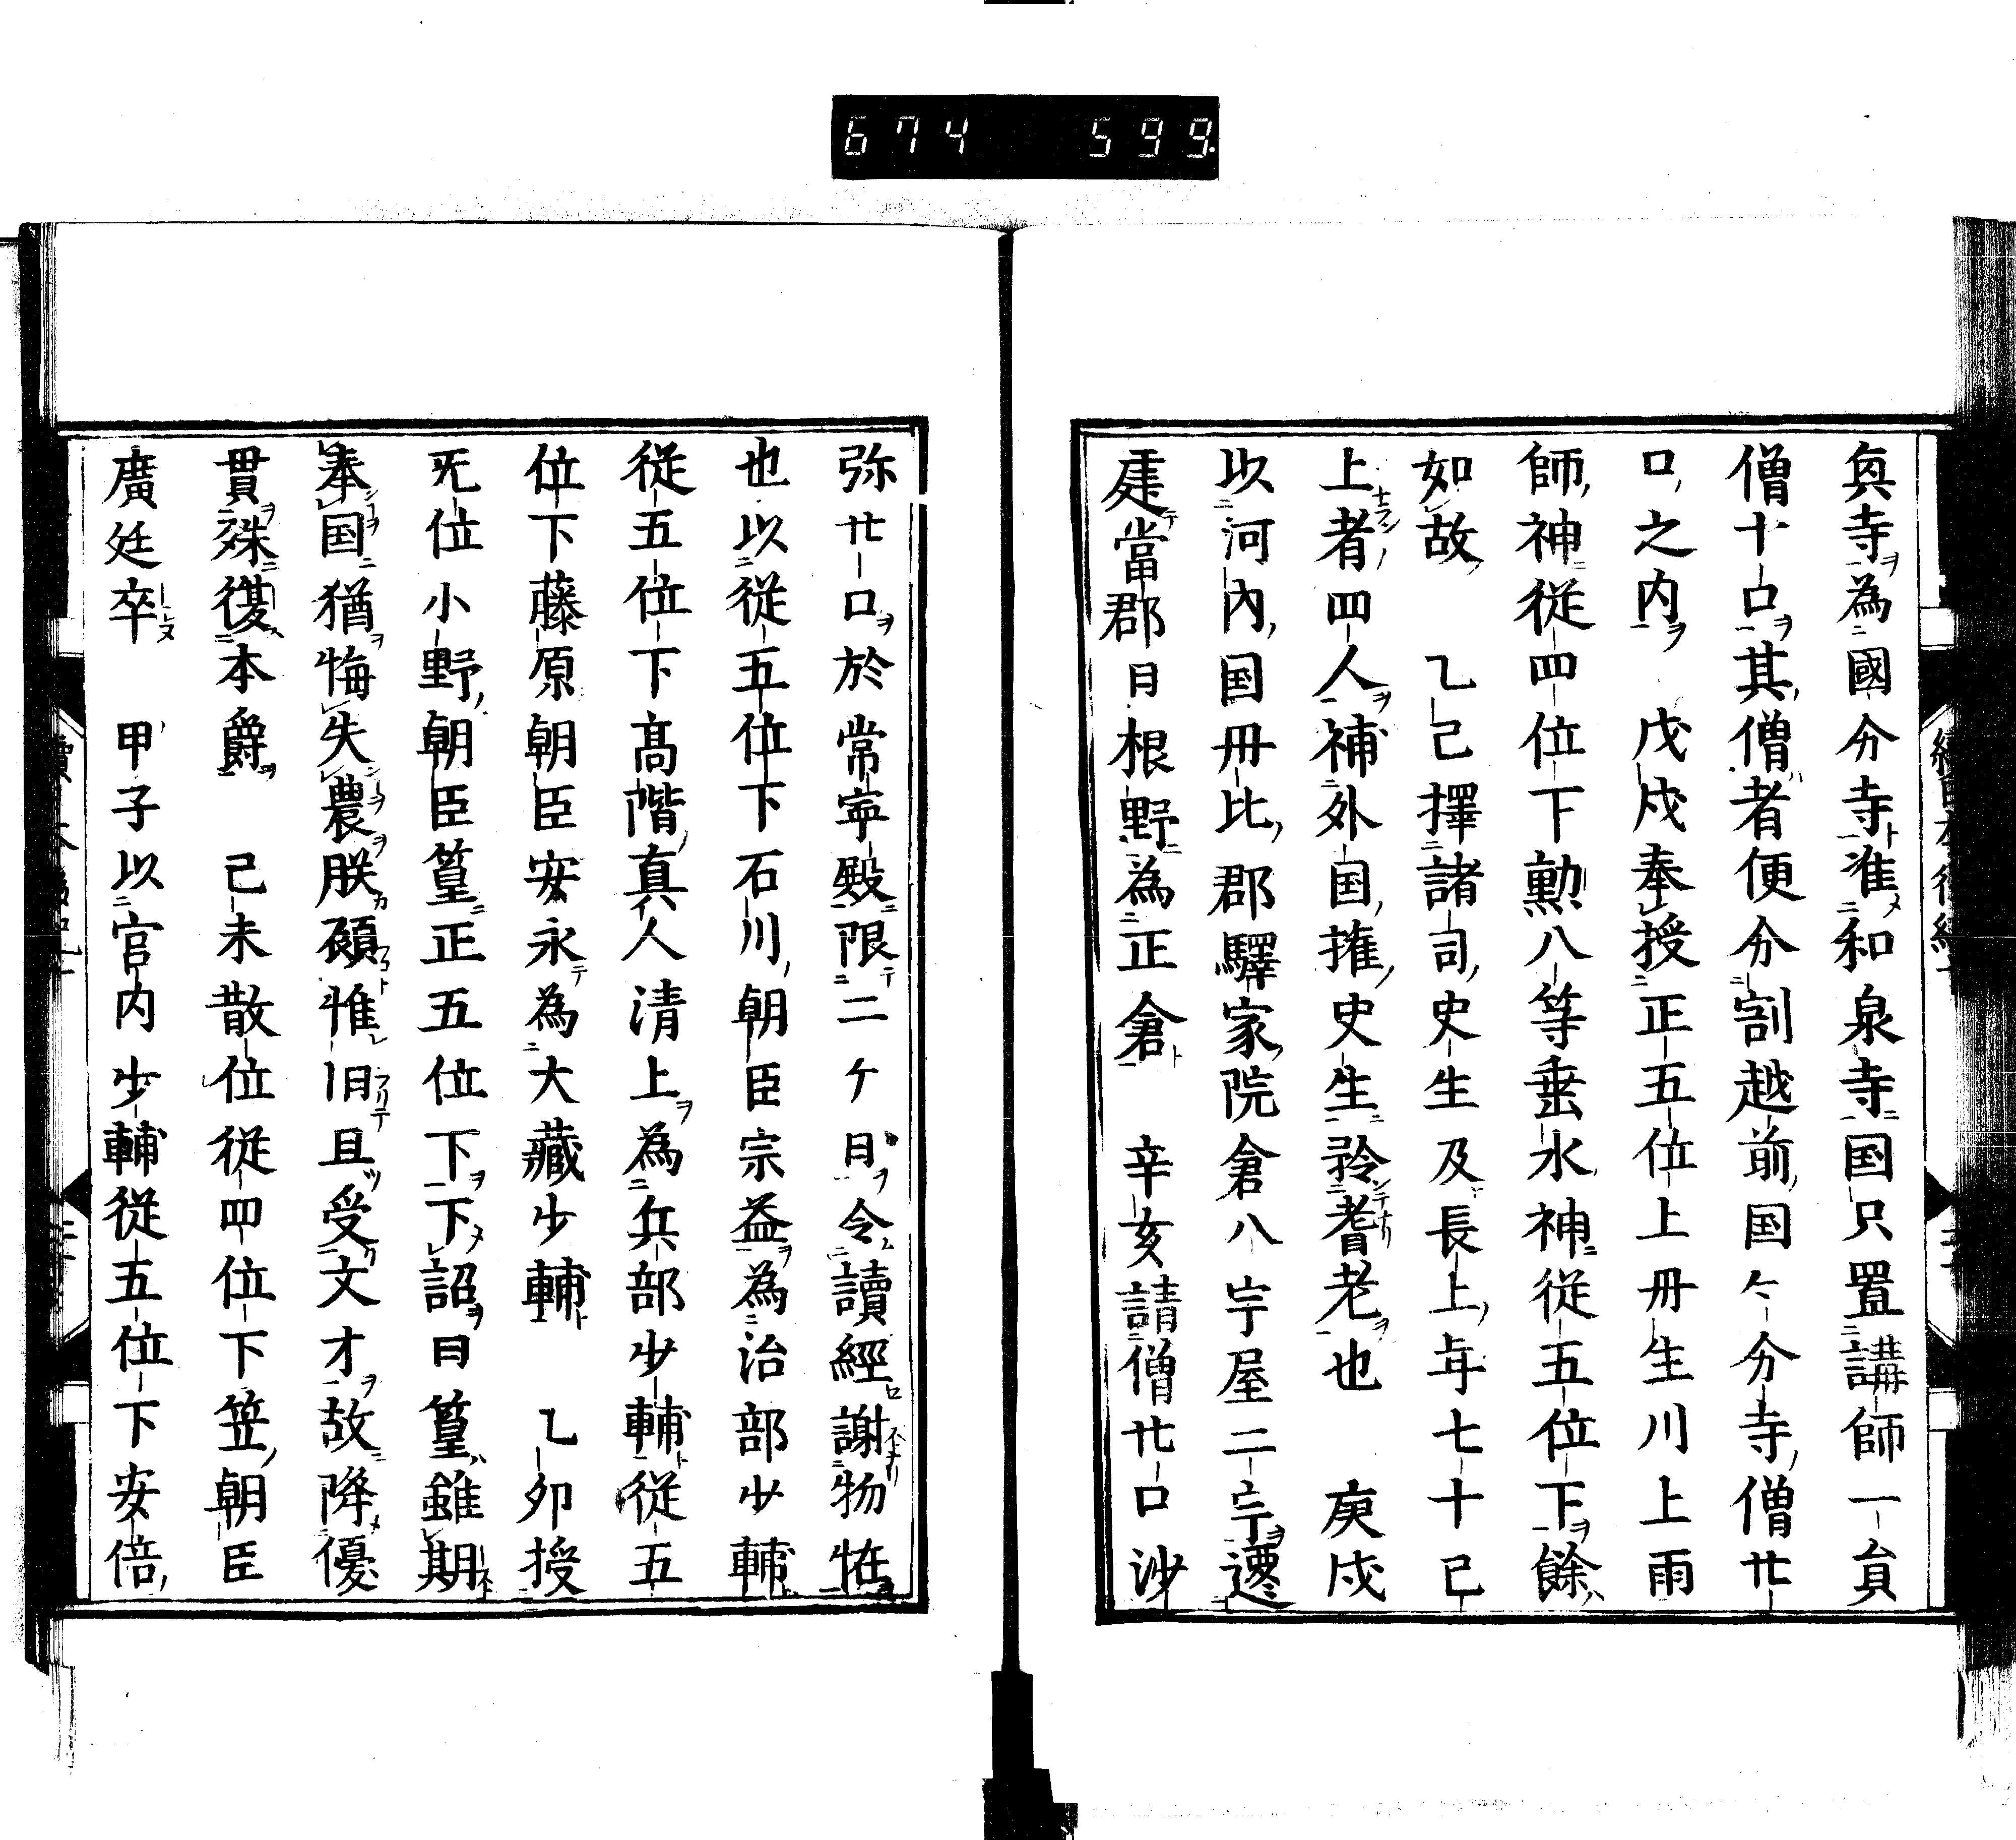 674 599
眞寺為國分寺准和泉寺国只置講師一負
僧十口其僧者便分割越前国分寺僧廿
口之内 戊戌奉授正五位上丹生川上雨
師神従四位下勲八等垂水神従五位下餘
如故 乙己擇諸司史生及長上年七十已
上者四人補外国搉史生矜耆老也 庚戌
以河内国丹比郡驛家院倉八宇屋二宇遷
建當郡日根野為正倉 辛亥請僧廿口沙
弥廿口於常寧殿限二ケ日令讀經謝物恠
也以従五位下石川朝臣宗益為治部少輔
従五位下髙階真人清上為兵部少輔従五
位下藤原朝臣安永為大藏少輔 乙卯授
旡位小野朝臣篁正五位下下詔曰篁雖期
奉国猶悔失農朕顧惟旧且受文才故降優
貫殊復本爵 己未散位従四位下笠朝臣
廣廷卒 甲子以宮内少輔従五位下安倍